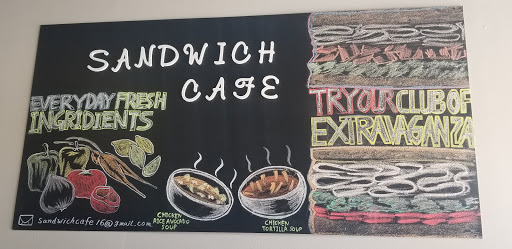 SANDWICH
CAFE
EVERYDAY FRESH
INGRIDIENTS
TRY OUR CLUB OF
EXTRAVAGANZA
CHICKEN
RICE AVOCADO
SOUP
CHICKEN
TORTILLA SOUP
sandwichcafe16@gmail.com